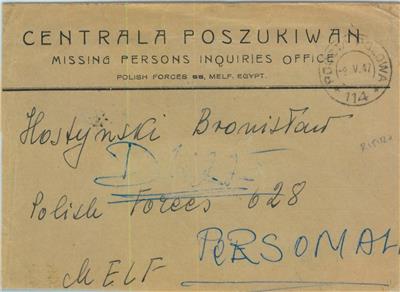 CENTRALA POSZUKIWAN
MISSING PERSONS INQUIRIES OFFICE
POLISH FORCES 55, MELF, EGYPT.
-9.V.47
114
Hostyński Bronisław
Polish Forces 628
PERSONAL
MELF